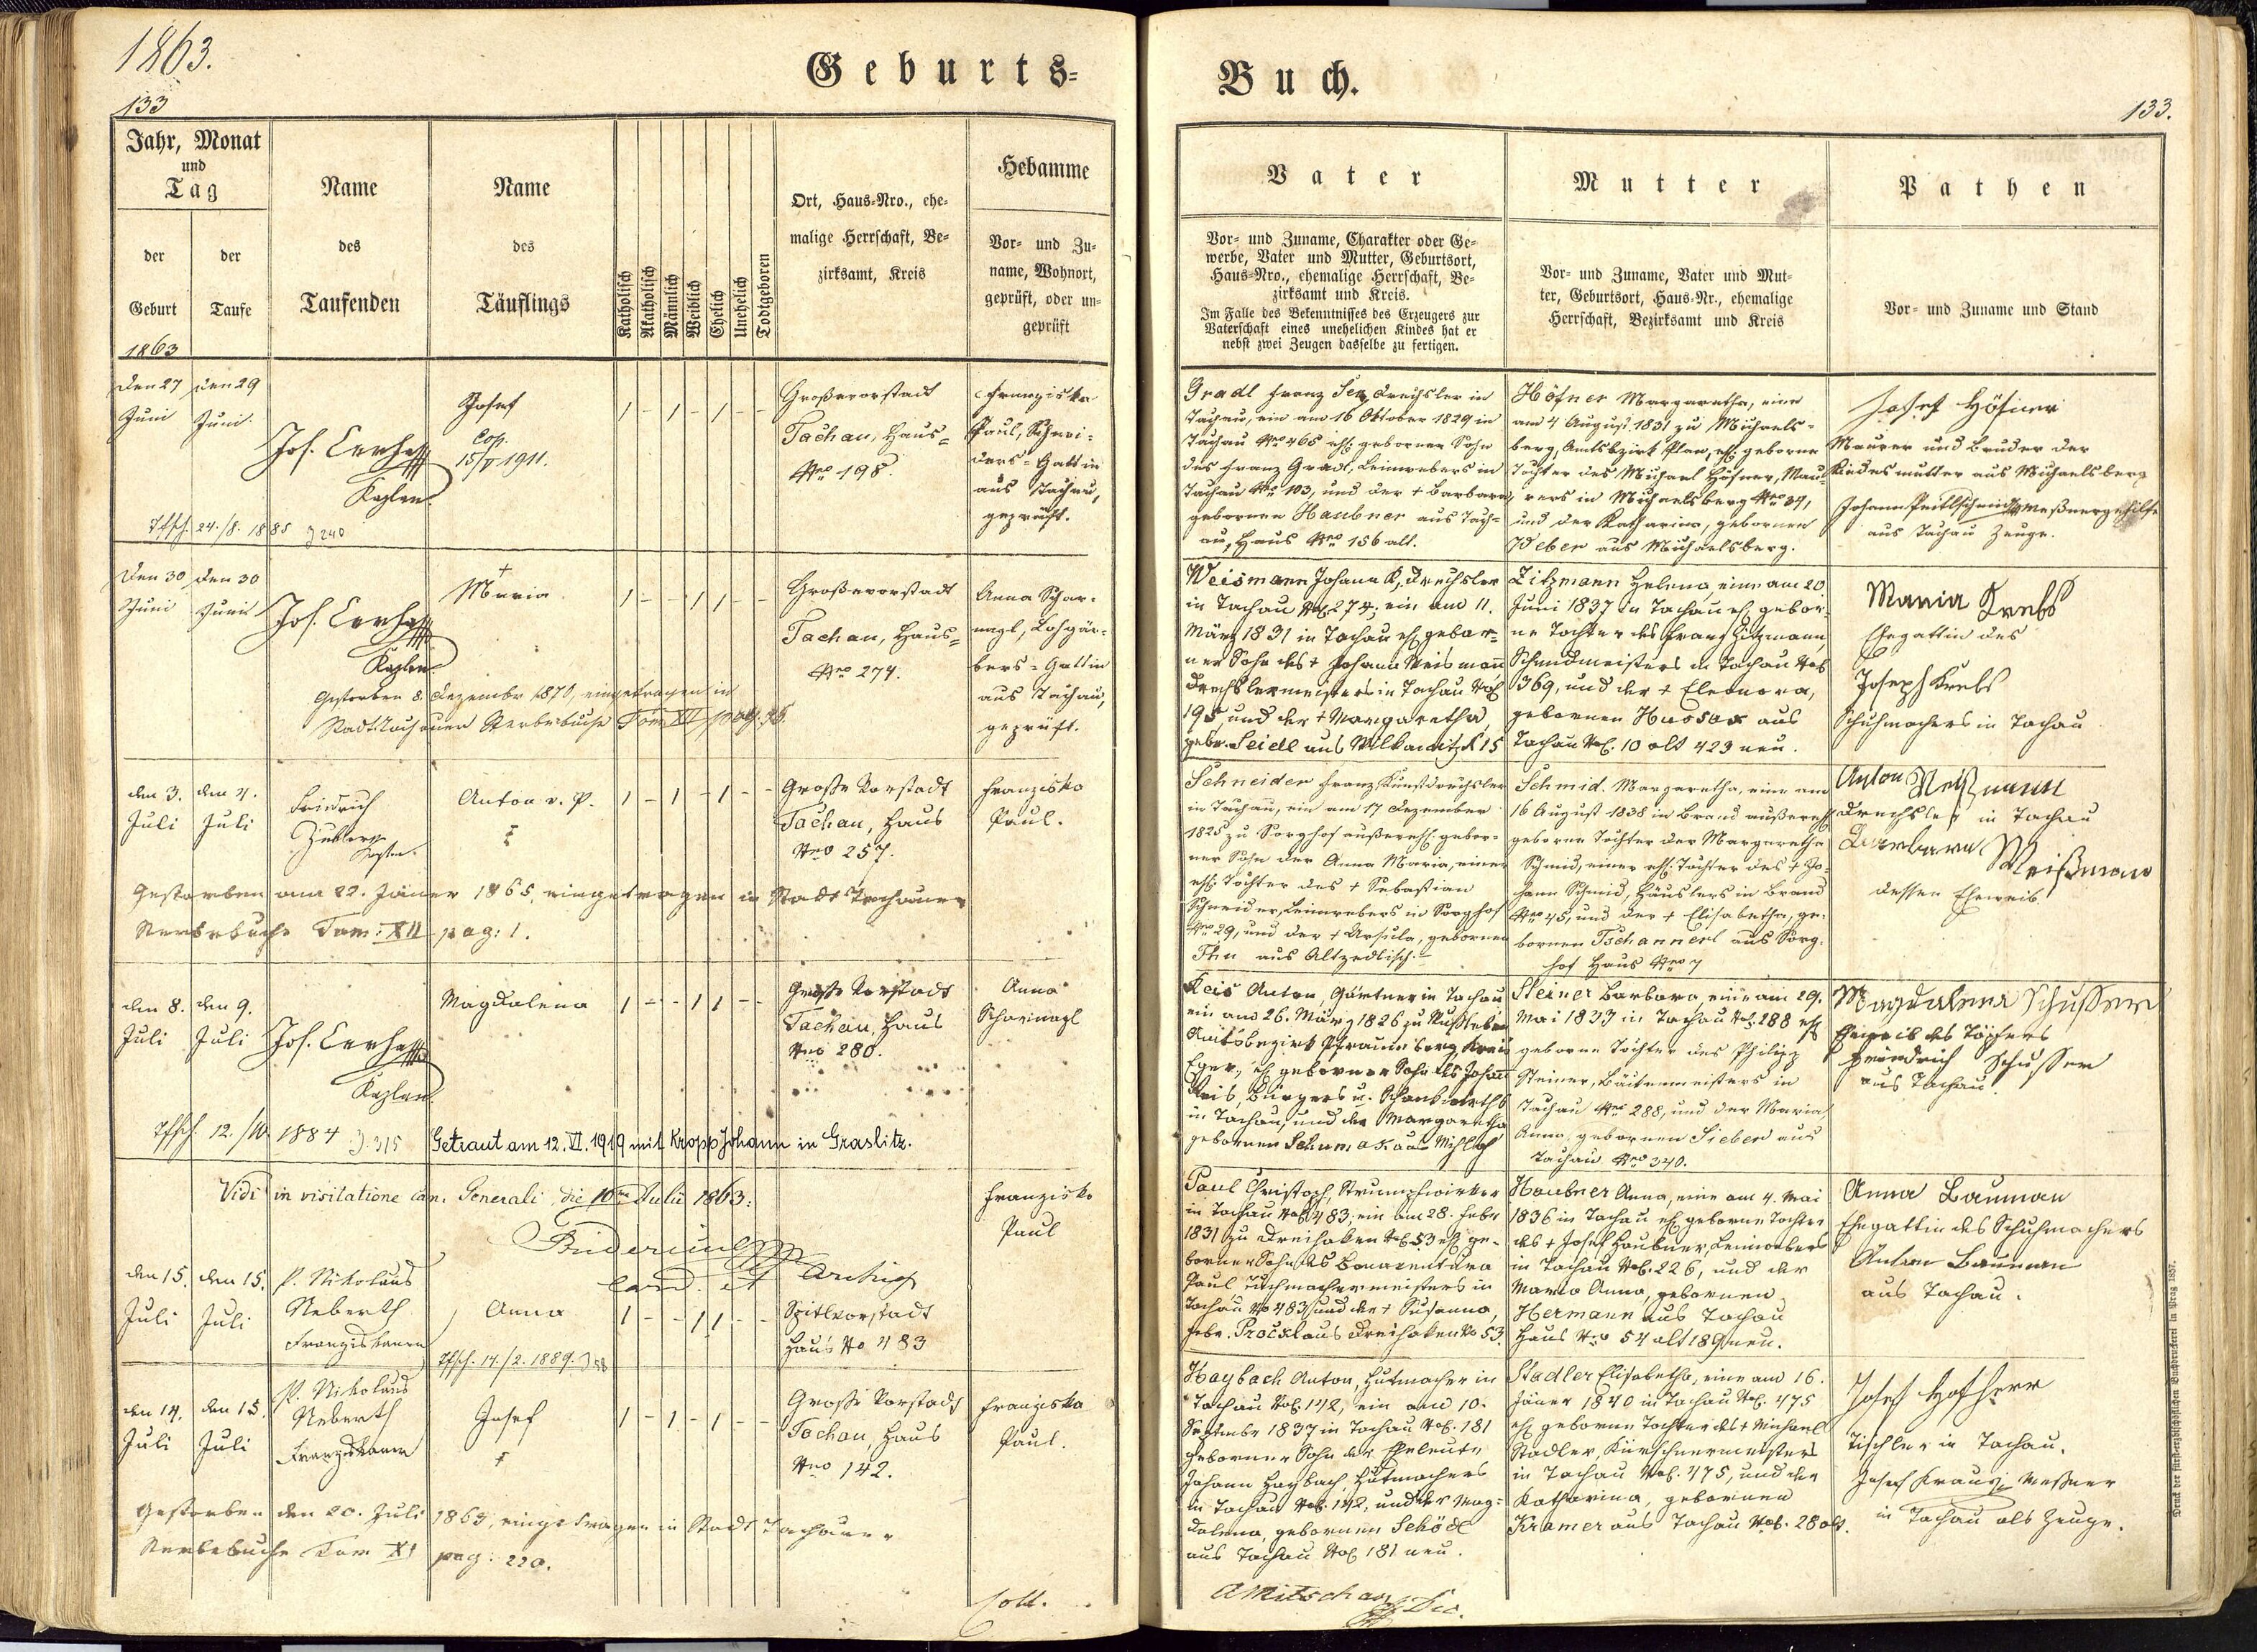 1863.
Geburts=
133
Jahr, Monat
und
Tag
der
Geburt
der
Taufe
1863
Name
des
Taufenden
Name
des
Täuflings
Katholisch
Akatholisch
Männlich
Weiblich
Ehelich
Unehelich
Todtgeboren
Ort, Haus=Nro., ehe=
malige Herrschaft, Be=
zirksamt, Kreis
Hebamme
Vor= und Zu=
name, Wohnort,
geprüft, oder un=
geprüft
den 27 den 29
Juni Juni
Jos. Cerha
Kaplan
Josef
Cop.
15/V 1911.
1 - 1 - 1 - -
Großevorstadt
Tachau, Haus=
Nro 198.
Franziska
Paul, Schnei=
ders=Gattin
aus Tachau,
geprüft.
Tfsch. 24./8. 1885 J 240
den 30 den 30
Juni Juni
Jos. Cerha
Kaplan
+
Maria
1 - - 1 1 - -
Großevorstadt
Tachau, Haus=
Nro 274.
Anna Schar=
nagl, Lohgär=
bers=Gattin
aus Tachau,
geprüft.
Gestorben 8. Dezember 1870, eingetragen in
Stadt Tachauer Sterbebuche Tom XII pag. 96.
den 3. den 4.
Juli Juli
Friedrich
Anton v. P.
1 - 1 - 1 - -
Große Vorstadt
Tachau, Haus
Nro 257.
Franziska
Paul.
Gestorben am 22. Jäner 1865, eingetragen in Stadt Tachauer
Sterbebuche Tom: XII pag: 1.
den 8. den 9.
Juli Juli
Jos. Cerha
Kaplan
Magdalena
1 - - 1 1 - -
Große Vorstadt
Tachau, Haus
Nro 280.
Anna
Scharnagl
Tfsch. 12./10. 1884 J. 315
Getraut am 12. VI. 1919 mit Kropp Johann in Graslitz.
Vidi in visitatione can. Generali die 10ma Julii 1863:
Card. et
Franziska
Paul
den 15. den 15.
Juli Juli
P. Nikolaus
Neberth
Franziskaner
Anna
1 - - 1 1 - -
Spitlvorstadt
Haus No 483
Tfsch. 14./2. 1889. J 58
den 14. den 15.
Juli Juli
P. Nikolaus
Neberth
Franziskaner
Josef
1 - 1 - 1 - -
Große Vorstadt
Tachau, Haus
Nro 142.
Franziska
Paul.
Gestorben den 20. Juli 1863, eingetragen in Stadt Tachauer
Sterbebuche Tom XI pag: 220.
Coll.
Buch.
133.
Vater
Vor= und Zuname, Charakter oder Ge=
werbe, Vater und Mutter, Geburtsort,
Haus=Nro., ehemalige Herrschaft, Be=
zirksamt und Kreis.
Im Falle des Bekenntnisses des Erzeugers zur
Vaterschaft eines unehelichen Kindes hat er
nebst zwei Zeugen dasselbe zu fertigen.
Mutter
Vor= und Zuname, Vater und Mut=
ter, Geburtsort, Haus=Nr., ehemalige
Herrschaft, Bezirksamt und Kreis
Pathen
Vor= und Zuname und Stand
Gradl Franz Drechsler in
Tachau, ein am 16 Oktober 1829 in
Tachau Nro 465 ehl. geborner Sohn
des Franz Gradl, Leinwebers in
Tachau Nro 103, und der + Barbara,
gebornen Haubner aus Tach=
au, Haus Nro 156 alt.
Höfner Margaretha, eine
am 4 August 1831 zu Michaels=
berg, Amtsbezirk Plan, ehl. geborne
Tochter des Michael Höfner, Mau=
rers in Michaelsberg Nro 34,
und der Katharina, gebornen
Weber aus Michaelsberg.
Josef Höfner
Maurer und Bruder der
Kindesmutter aus Michaelsberg
Johann Meßnergehilfe
aus Tachau Zeuge.
Weismann Johann Drechsler
in Tachau No. 274, ein am 11.
März 1831 in Tachau ehl. gebor=
ner Sohn des + Johann Weismann
Drechslermeisters in Tachau No
195 und der + Margaretha,
gebor. Seidl aus N 15
Zitzmann Helena, eine am 20
Juni 1837 in Tachau ehl. gebor=
ne Tochter des Franz Zitzmann,
Schmidmeisters in Tachau No
369, und der + Eleonora,
gebornen Hussar aus
Tachau No. 10 alt 423 neu.
Maria Krebs
Ehegattin des
Joseph Krebs
Schuhmachers in Tachau
Schneider Franz Kunstdrechsler
in Tachau, ein am 17 Dezember
1825 zu Sorghof außerehl. gebor=
ner Sohn der Anna Maria, einer
ehl. Tochter des + Sebastian
Schneider, Leinwebers in Sorghof
Nro 29, und der + Ursula, gebornen
aus Altzedlisch.
Schmid Margaretha, eine am
16 August 1838 in Brand außerehl.
geborne Tochter der Margaretha
Schmid, einer ehl. Tochter des + Jo=
hann Schmid, Häuslers in Brand
Nro 45, und der + Elisabetha, ge=
bornen Tschannerl aus Sorg=
hof Haus Nro 7
Anton Weißmann
Drechsler in Tachau
Barbara Weißmann
dessen Eheweib.
Reis Anton, Gärtner in Tachau
ein am 26. März 1826 zu
Amtsbezirk Pfraumberg Kreis
Eger, ehl. geborner Sohn des Johann
Reis, Bürgers u. Schankwirths
in Tachau, und der Margaretha
gebornen Schumak aus
Steiner Barbara, eine am 29.
Mai 1833 in Tachau No. 288 ehl.
geborne Tochter des Philipp
Steiner, meisters in
Tachau Nro 288, und der Maria
Anna, gebornen Sieber aus
Tachau Nro 340.
Magdalena Schusser
Eheweib des Töpfers
Friedrich Schusser
aus Tachau
Paul Christoph, Strumpfwirker
in Tachau No. 483, ein am 28. Feber
1831 zu Dreihaken No. 53 ehl. ge=
borner Sohn des Bonaventura
Paul Tuchmachermeisters in
Tachau No 483 und der + Susanna,
gebor. Procsk aus Dreihaken No 53.
Haubner Anna, eine am 4. Mai
1836 in Tachau ehl. geborne Tochter
des + Josef Haubner, Leinwebers
in Tachau No. 226, und der
Maria Anna, gebornen
Hermann aus Tachau
Haus Nro 54 alt 189 neu.
Anna Bauman
Ehegattin des Schuhmachers
Anton Bauman
aus Tachau.
Haybach Anton, Hutmacher in
Tachau No. 142, ein am 10.
September 1837 in Tachau No. 181
geborner Sohn der Eheleute
Johann Haybach, Hutmachers
in Tachau No. 142, und der Mag=
dalena, gebornen Schödl
aus Tachau No. 181 neu.
Stadler Elisabetha, eine am 16.
Jäner 1840 in Tachau No. 475
ehl. geborne Tochter des + Michael
Stadler, Kürschnermeisters
in Tachau No. 475, und der
Katharina, gebornen
Kramer aus Tachau No. 28 alt.
Josef Hofherr
Tischler in Tachau.
Josef Kraus, Meßner
in Tachau als Zeuge.
Druck der fürst-erzbischöflichen Buchdruckerei in Prag 1857.